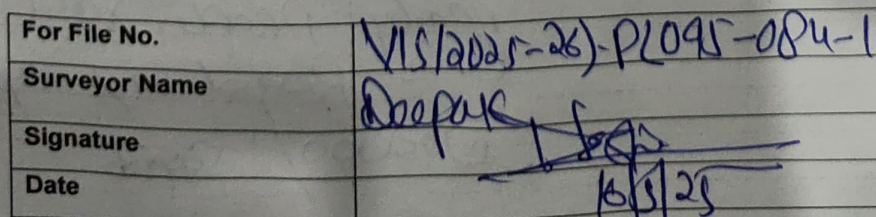 For File No. VIS(2025-26)-PL095-084-1
Surveyor Name Deepak
Signature
Date 16/5/25